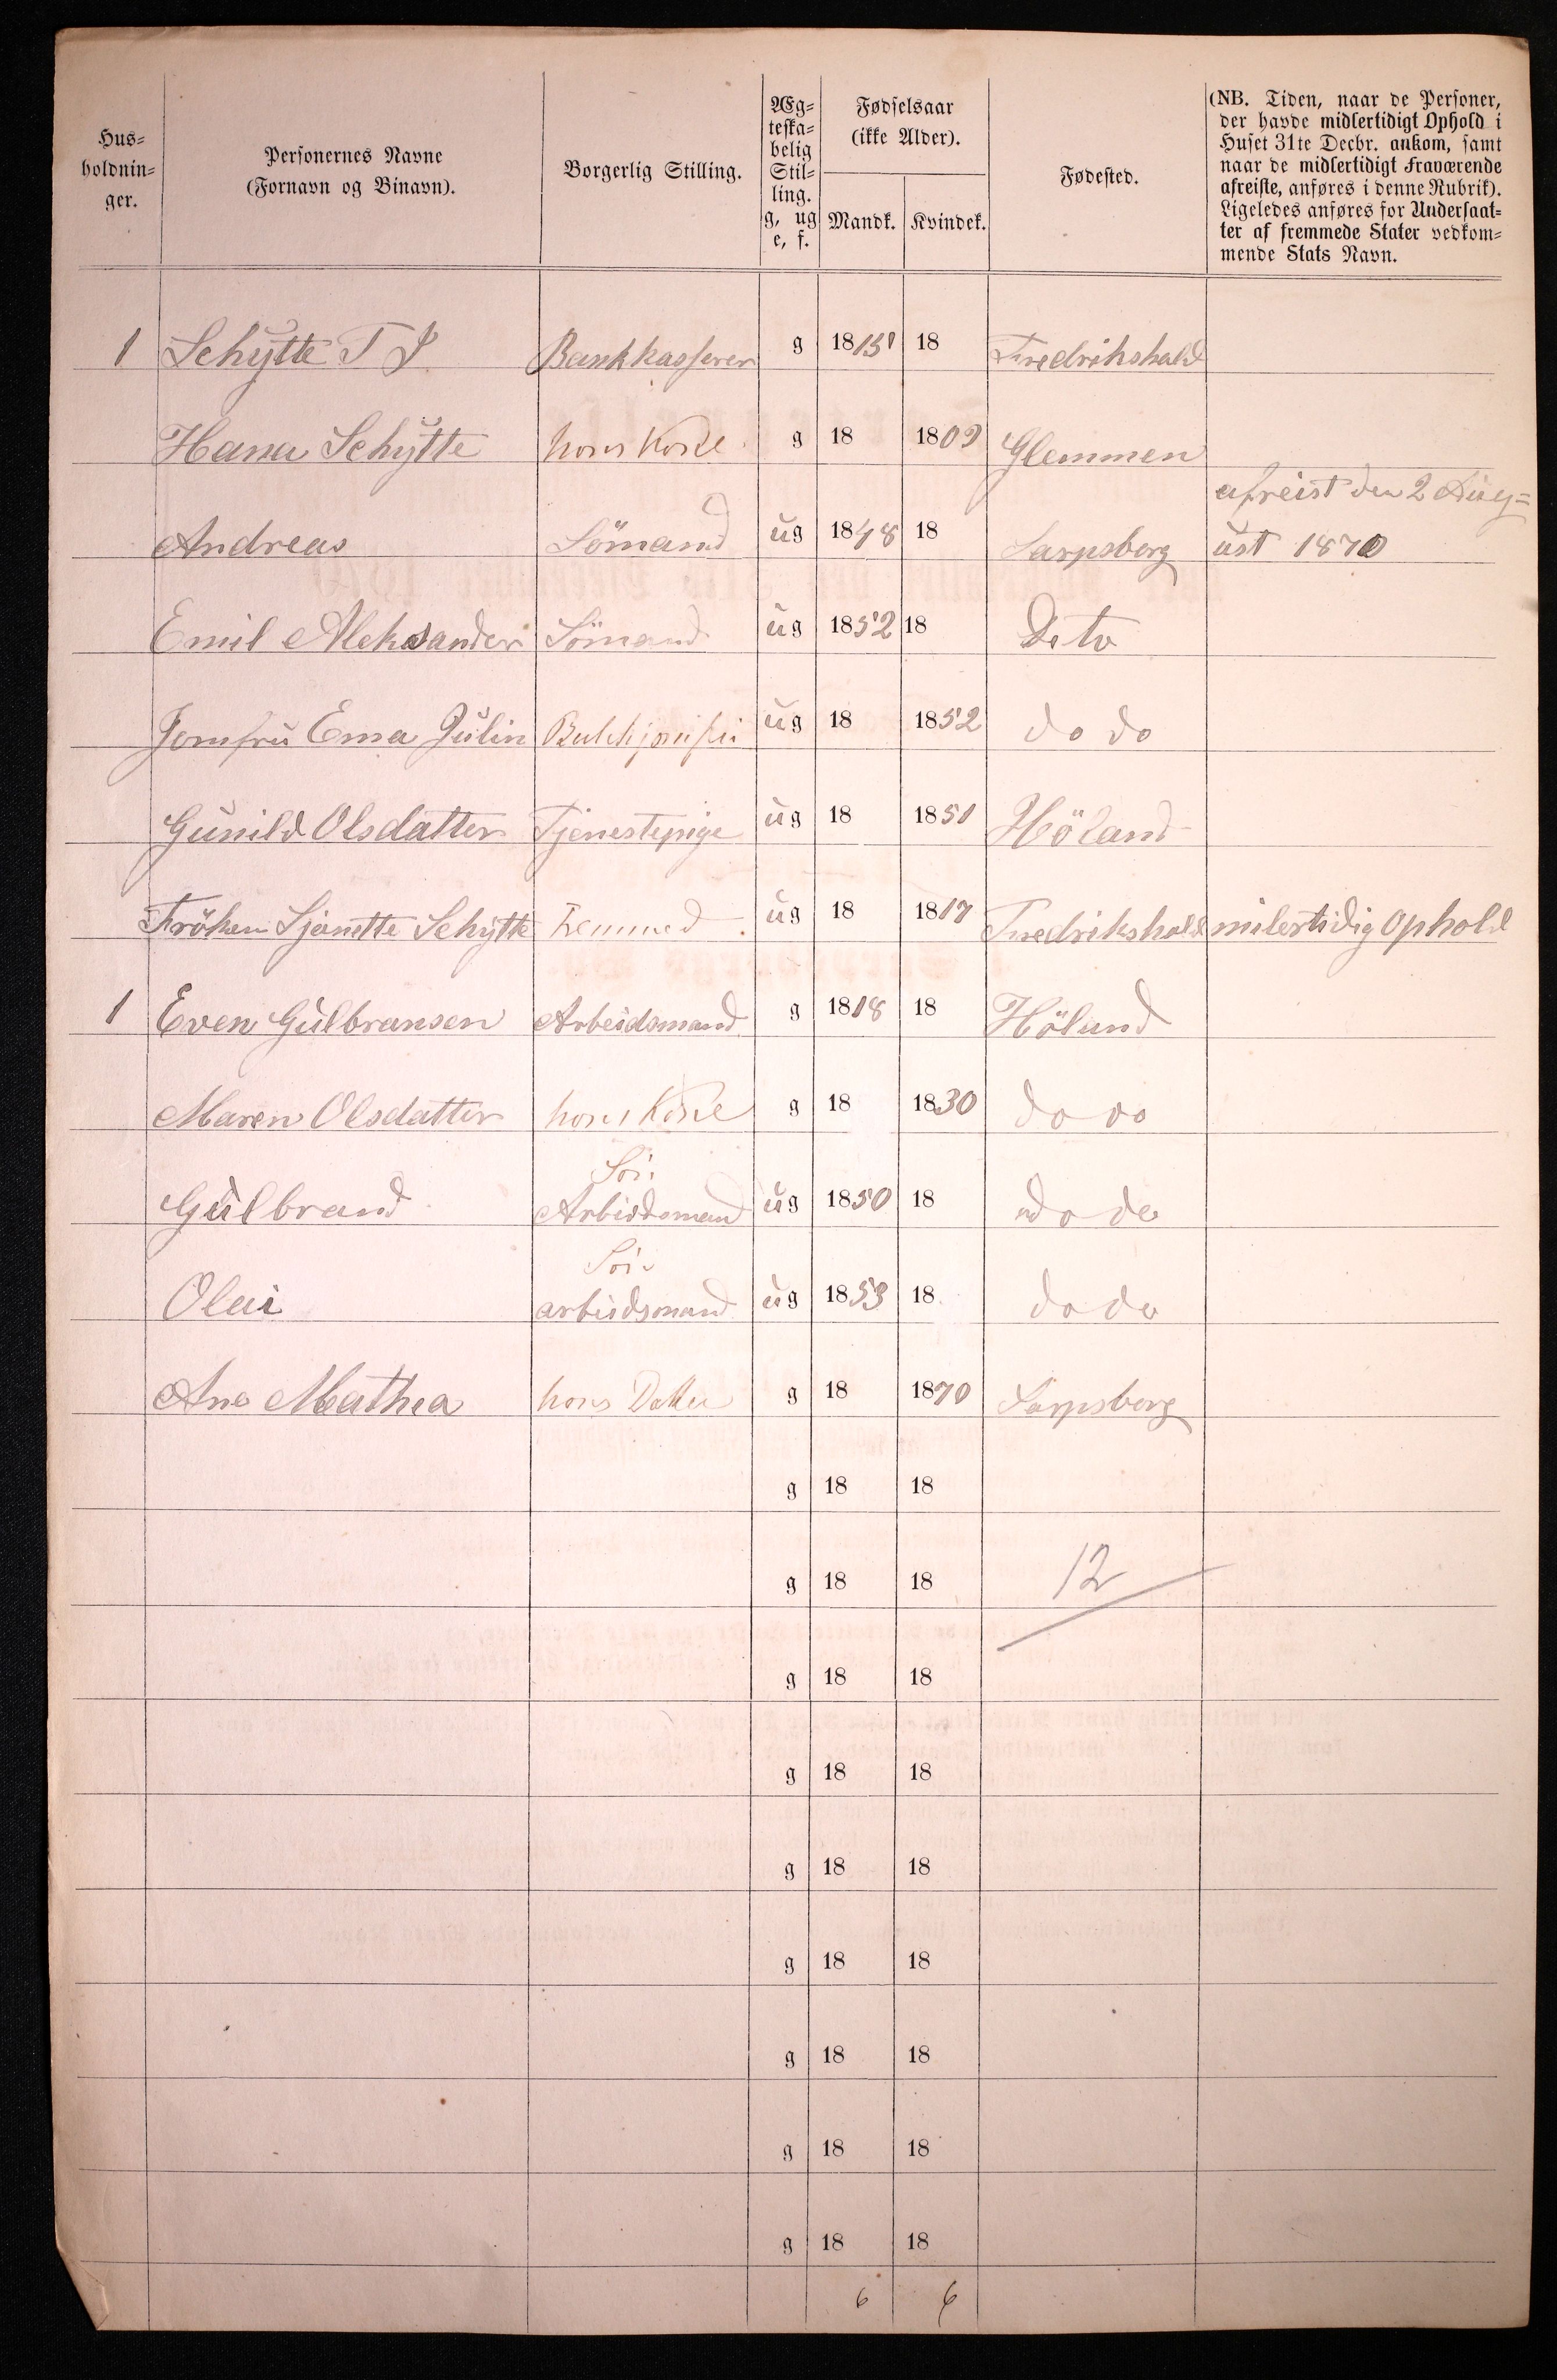 Hus-
holdnin-
ger.
Personernes Navne
(Fornavn og Binavn).
Borgerlig Stilling.
Æg-
teska-
belig
Stil-
ling.
g, ug
e, f.
Fødselsaar
(ikke Alder).
Mandk. Kvindek.
Fødested.
(NB. Tiden, naar de Personer,
der havde midlertidigt Ophold i
Huset 31te Decbr. ankom, samt
naar de midlertidigt Fraværende
afreiste, anføres i denne Rubrik).
Ligeledes anføres for Undersaat-
ter af fremmede Stater vedkom-
mende Stats Navn.
1 Schytte T Bankkasserer g 1815 18 Fredrikshald
Hana Schytte hans Kone g 18 1809 Glemmen
afreist den 2 Aug-
Andreas Sömand ug 1848 18 Sarpsberg ust 1870
Emil Aleksander Sömand ug 1852 18 Deto
Jomfru Ema Julin ug 18 1852 do do
Gunild Olsdatter Tjenestepige ug 18 1851 Höland
Fröken Sjanette Schytte ug 18 1817 Fredrikshald milertidig Ophold
1 Even Gulbransen Arbeidsmand g 1818 18 Höland
Maren Olsdatter hans Kone g 18 1830 do do
Gulbrand Arbeidsmand ug 1850 18 do do
Olai arbeidsmand ug 1853 18 do do
Ane Mathea hans Datter g 18 1870 Sarpsborg
g 18 18
g 18 18 12
g 18 18
g 18 18
g 18 18
g 18 18
g 18 18
g 18 18
g 18 18
6 6